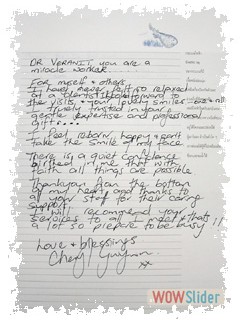 DR VERANIT, you are a
miracle worker.....
For myself & others.
I have never felt so relaxed
at a dentist & look forward to
the visits, & your lovely smiles
I truely trusted in your
gentle expertise and professional
gifts....
I feel reborn, happy & can't
take the smile of my face
There is a quiet confidence
instilled in me that with
faith all things are possible
Thankyou from the bottom
of my heart and thanks to
all your staff for their caring
support.
I will recommend your
services to all I meet & thats
a lot so prepare to be busy!!
Love & blessings
Cheryl
xx
WOWSlider